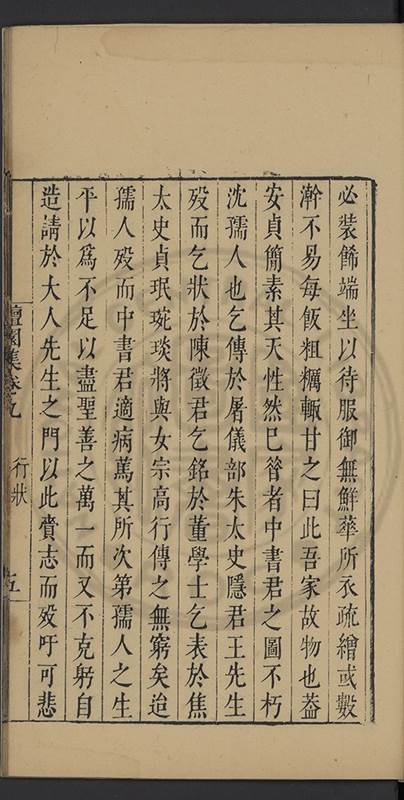 必裝餙端坐以待服御無鮮華所衣疏繒或數
澣不易每飯粗糲輒甘之曰此吾家故物也葢
安貞簡素其天性然已昝者中書君之圖不朽
沈孺人也乞傳於屠儀部朱太史隱君王先生
殁而乞狀於陳徵君乞銘於董學士乞表於焦
太史貞珉琬琰將與女宗高行傳之無窮矣迨
孺人殁而中書君適病篤其所次第孺人之生
平以爲不足以盡聖善之萬一而又不克躬自
造請於大人先生之門以此賫志而殁吁可悲
檀園集卷九
行狀
五